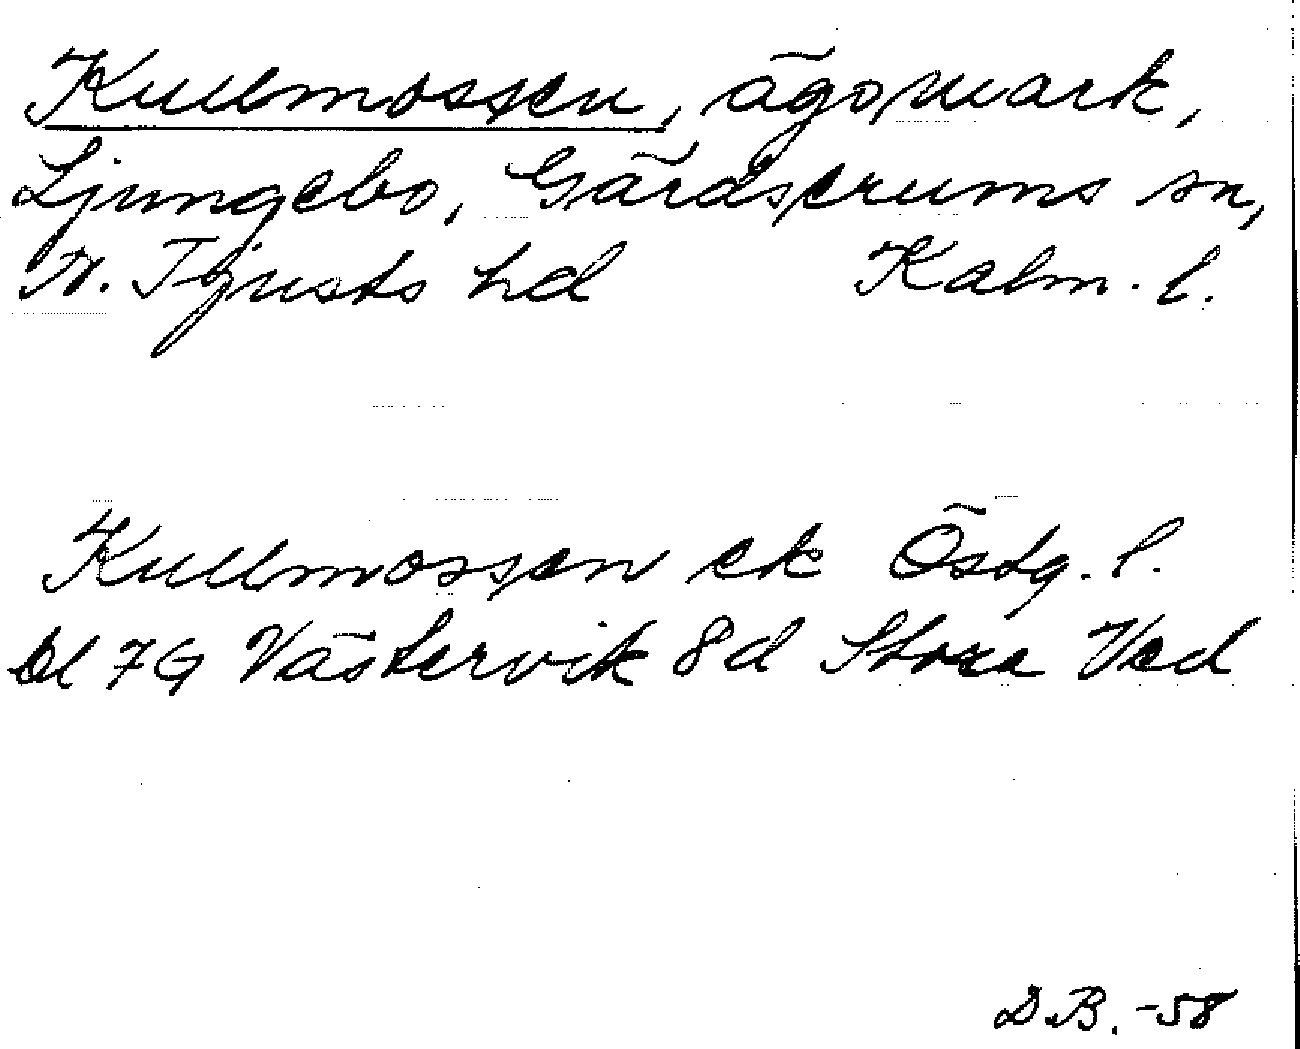 Kullmossen, ägomark,
Ljungebo, Gärdserums sn,
N. Tjusts hd Kalm. l.
Kullmossen ek Östg. l.
Bl 7G Västervik 8d Stora Ved
D.B. -58